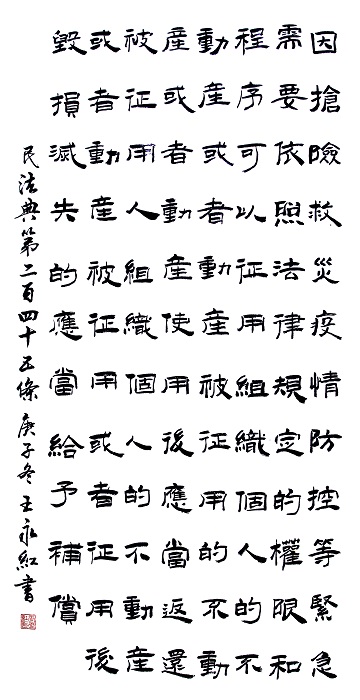 因搶險救災疫情防控等緊急
需要依照法律規定的權限和
程序可以征用組織個人的不
動產或者動產被征用的不動
產或者動產使用後應當返還
被征用人組織個人的不動產
或者動產被征用或者征用後
毀損滅失的應當給予補償
民法典第二百四十五條庚子冬王永紅書